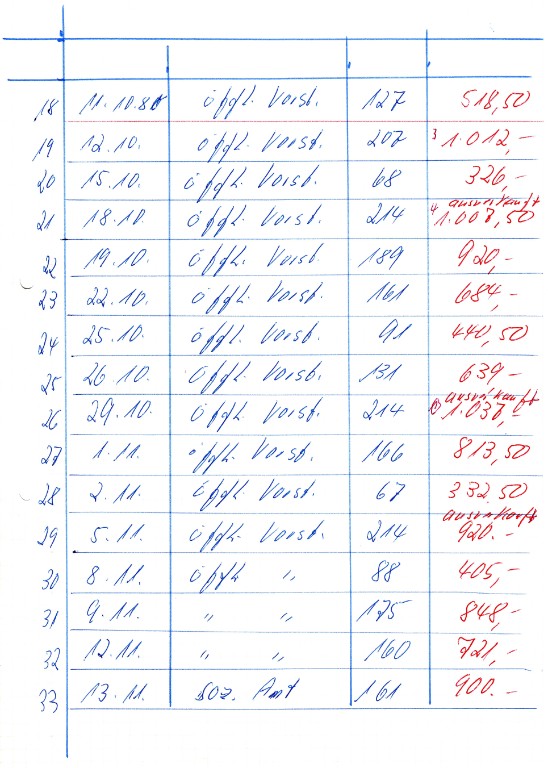 18 11.10.80 öfftl. Vorst. 127 518,50
19 12.10. öfftl. Vorst. 207 3 1.012,-
20 15.10. öfftl. Vorst. 68 326,-
ausverkauft
21 18.10. öfftl. Vorst. 214 4 1.007,50
22 19.10. öfftl. Vorst. 189 920,-
23 22.10. öfftl. Vorst. 161 684,-
24 25.10. öfftl. Vorst. 91 440,50
25 26.10. öfftl. Vorst. 131 639,-
ausverkauft
26 29.10. öfftl. Vorst. 214 1.037,-
27 1.11. öfftl. Vorst. 166 813,50
28 2.11. öfftl. Vorst. 67 332,50
ausverkauft
29 5.11. öfftl. Vorst. 214 920.-
30 8.11. öfftl. " 88 405,-
31 9.11. " " 175 848,-
32 12.11. " " 160 721,-
33 13.11. Soz. Amt 161 900.-